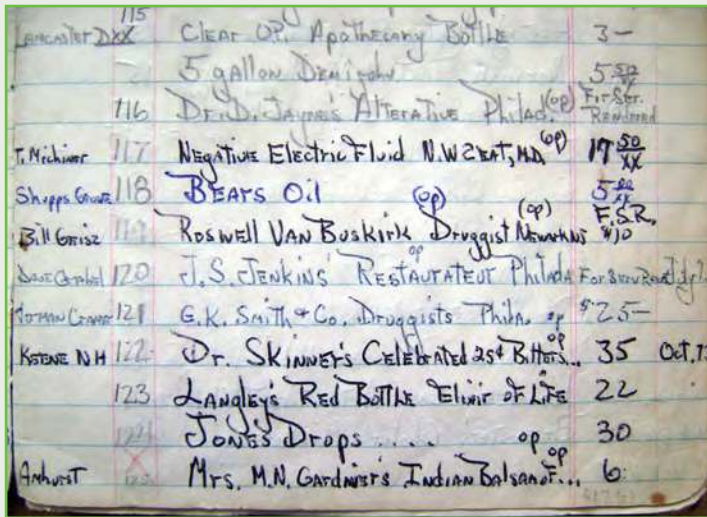 115
Lancaster DXX Clear O.P. Apothecary Bottle 3—
5 gallon Demijohn 5 50/XX
116 Dr. D. Jayne's Alterative Philad. (op) For Ser. Rendered
T. Michiner 117 Negative Electric Fluid N.W Seat, M.D. (op) 17 50/XX
Shupps Grove 118 Bears Oil (op) 5 00/XX
Bill Geisz 119 Roswell Van Buskirk Druggist Newark NJ (op) F.S.R. $10
120 J.S. Jenkins' Restaurateur Philada op For Serv Rend July
121 G.K. Smith & Co. Druggists Phila. op $25—
Keene NH 122 Dr. Skinner's Celebrated 25¢ Bitters... op 35 Oct. 73
123 Langley's Red Bottle Elixir of Life 22
124 Jones Drops .... op 30
Amhurst 125 Mrs. M.N. Gardner's Indian Balsam of... op 6